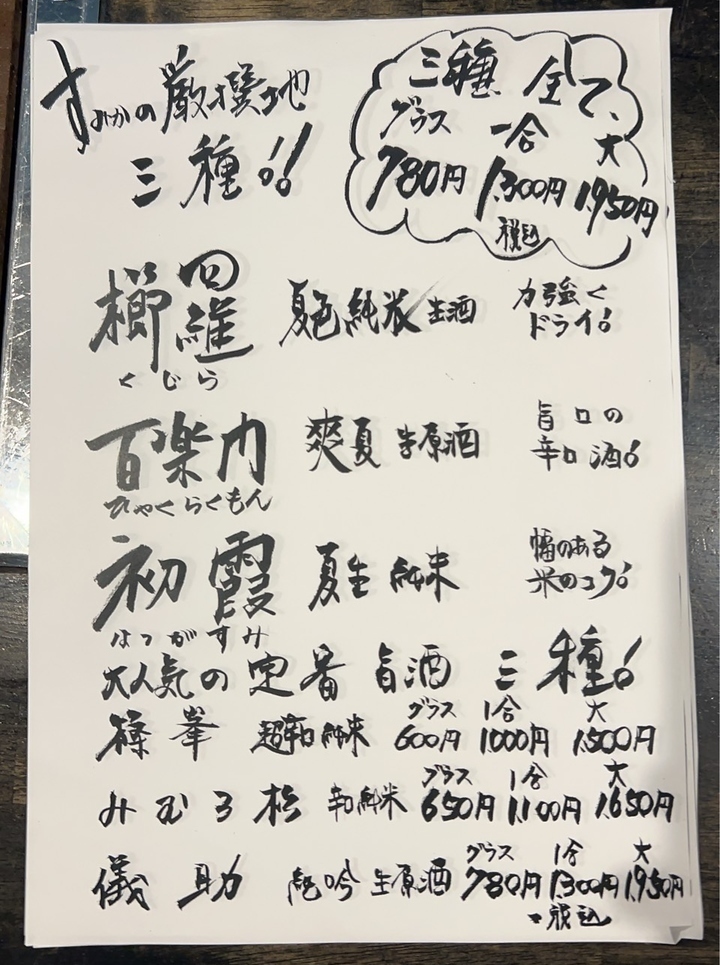 すみかの厳撰地
三種!!
三種全て、
グラス 一合 大
780円 1.300円 1.950円
税込
櫛羅 夏色純米生酒 力強くドライ!
くじら
百楽門 爽夏生原酒 旨口の辛口酒!
ひゃくらくもん
初霞 夏生純米 幅のある米のコク!
はつがすみ
大人気の定番旨酒三種!
グラス 1合 大
篠峯 超辛口純米 600円 1.000円 1.500円
グラス 1合 大
みむろ杉 辛口純米 650円 1.100円 1.650円
グラス 1合 大
儀助 純吟生原酒 780円 1.300円 1.950円
・税込